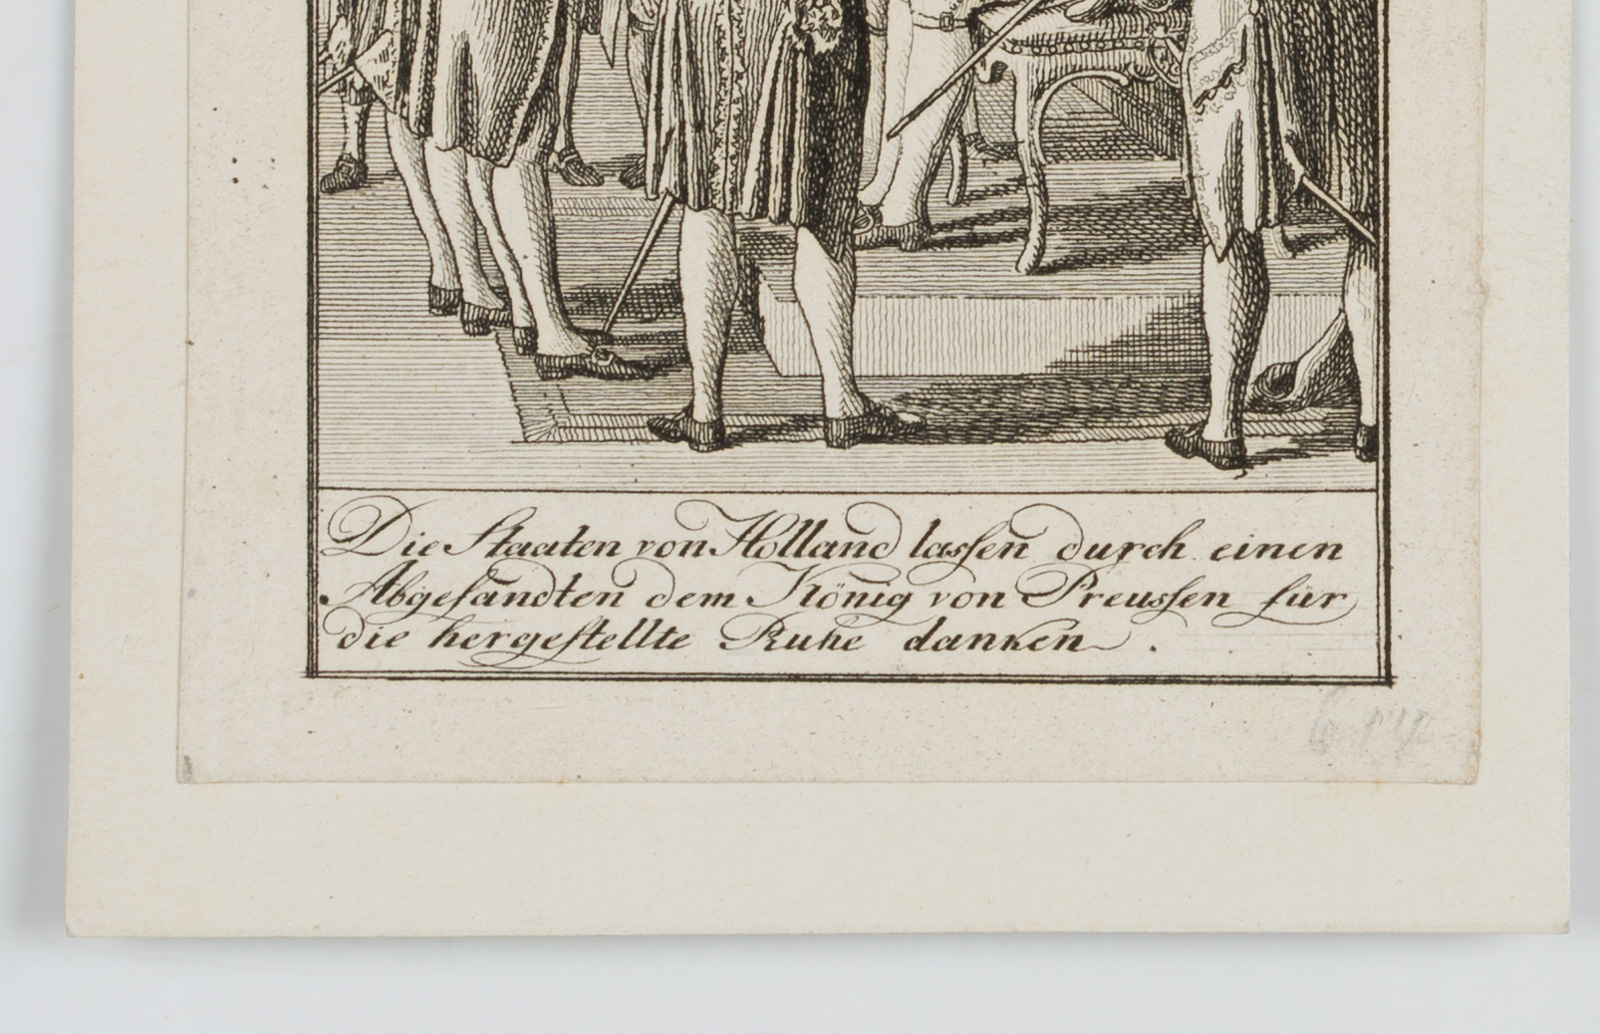 Die Staaten von Holland lassen durch einen
Abgesandten dem König von Preussen für
die hergestellte Ruhe danken.